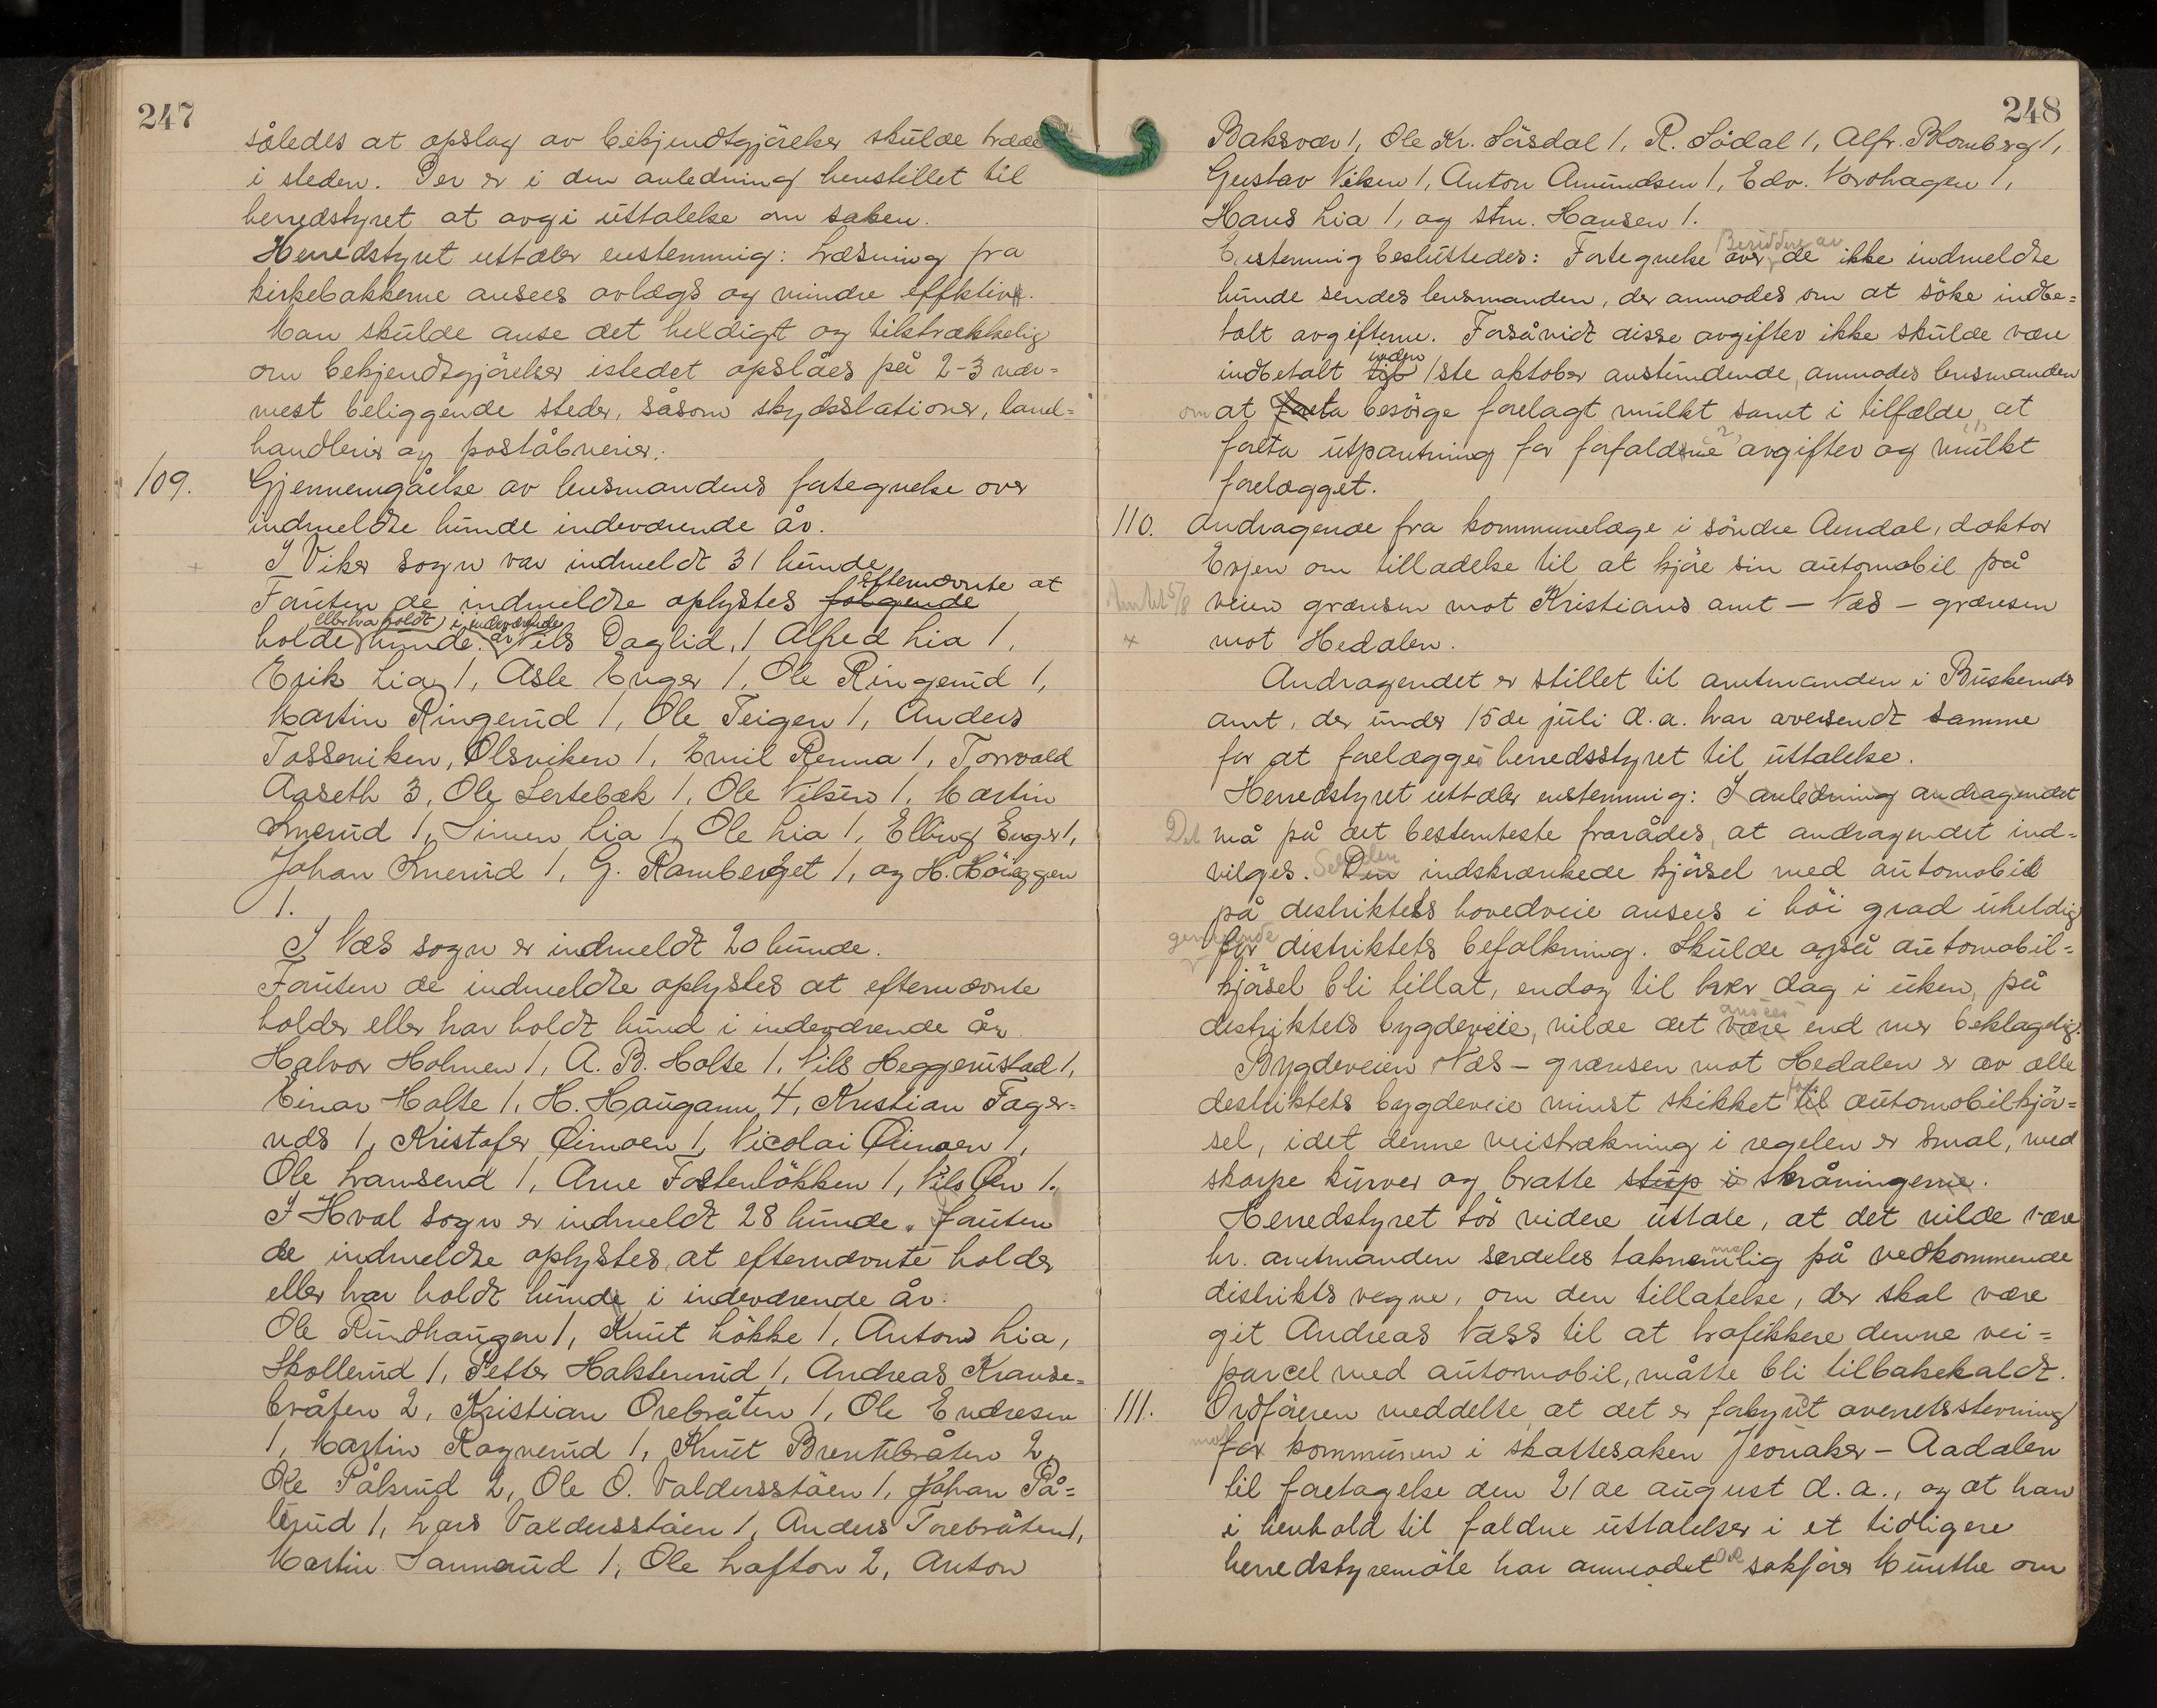 247
således at opslag av bekjendtgjörelser skulde træde
i steden. Der er i den anledning henstillet til
herredstyret at avgi uttalelse om saken.
Herredstyret uttaler enstemmig: Læsning fra
kirkebakkerne ansees avlegs og mindre effktiv.
Man skulde anse det heldigt og tilstrækkelig
om bekjendtgjörelser istedet opslåes på 2-3 nær=
mest beliggende steder, såsom skydsstationer, land=
handlerier og poståbnerier.
109. Gjennemgåelse av lensmandens fortegnelse over
indmeldte hunde indeværende år.
I Viker sogn var indmeldt 31 hunde
Foruten de indmeldte oplystes følgende efternævnte at
holde eller ha holdt hunde i indeværende år Nils Daglid, 1 Alfred Lia 1,
Erik Lia 1, Asle Enger 1, Ole Ringerud 1,
Martin Ringerud 1, Ole Teigen 1, Anders
Tosseviken, Olsviken 1, Emil Renna 1, Torvald
Aaseth 3, Ole Sertebæk 1, Ole Nilsen 1, Martin
Smerud 1, Simen Lia 1, Ole Lia 1, Elling Enger 1,
Johan Smerud 1, G. Ramberget 1, og H. Höiaggen
1.
I Næs sogn er indmeldt 20 hunde.
Foruten de indmeldte oplystes at efternævnte
holder eller har holdt hund i indeværende år
Halvor Holmen 1, A. B. Holte 1, Nils Heggerustad 1,
Einar Holte 1, H. Haugann 4, Kristian Fager=
nds 1, Kristofer Øimoen 1, Nicolai Øimoen 1,
Ole 1, Arne Fostenlökken 1, Nils Øen 1.
I Hval sogn er indmeldt 28 hunde. Foruten
de indmeldte oplystes, at efternævnte holder
eller har holdt hunde i indeværende år:
Ole Rundhaugen 1, Knut Lökke 1, Anton Lia,
Skollerud 1, Petter Haksterud 1, Andreas Kranse=
bråten 2, Kristian Orebråten 1, Ole Endresen
1, Martin Ragnerud 1, Knut Brentebråten 2,
Ole Pålsrud 2, Ole O. Valdersstöen 1, Johan På=
lsrud 1, Lars Valdersstöen 1, Anders Torebråten 1,
Martin Sannerud 1, Ole Lofton 2, Anton
248
Baksvær 1, Ole Kr. Sörsdal 1, R. Södal 1, Alfr. Blomberg 1,
Gustav Viken 1, Anton Amundsen 1, Edv. Vorshagen 1,
Hans Lia 1, og stm. Hansen 1.
Enstemmig besluttedes: Fortegnelse over Besiddere av de ikke indmeldte
hunde sendes lensmanden, der anmodes om at söke indbe=
talt avgifterne. Forsåvidt disse avgifter ikke skulde være
indbetalt til inden 1ste oktober anstundende, anmodes lensmanden
om at foreta besörge forelagt mulkt samt i tilfælde at
foreta utpantning for forfaldne avgifter og mulkt
forelægget.
110. Andragende fra kommunelæge i söndre Aurdal, doktor
Evjen om tilladelse til at kjöre sin automobil på
veien grænsen mot Kristians amt — Næs — grænsen
mot Hedalen.
Andragendet er stillet til amtmanden i Buskeruds
amt, der under 15de juli d.a. har oversendt samme
for at forelægges herredsstyret til uttalelse.
Herredstyret uttaler enstemmig: I anledning andragendet
Det må på det bestemteste frarådes, at andragendet ind=
vilges. Selv den Den indskrænkede kjörsel med automobil
på distriktets hovedveie ansees i höi grad uheldig
for distriktets befolkning. Skulde også automobil=
kjörsel bli tillat, endog til hver dag i uken, på
distriktets bygdeveie, vilde det være ansees end mer beklagelig.
Bygdeveien Næs — grænsen mot Hedalen er av alle
distriktets bygdeveie minst skikket til for automobilkjö=
sel, idet denne veistrækning i regelen er smal, med
skarpe kurver og bratte stup i skråningerne.
Herredstyret tör videre uttale, at det vilde være
hr. amtmanden særdeles taknemlig på vedkommende
distrikts vegne, om den tillatelse, der skal være
git Andreas Næss til at trafikkere denne vei=
parcel med automobil, måtte bli tilbakekaldt.
111. Ordföreren meddelte at det er forkynt overretsstevning
mot for kommunen i skattesaken Jevnaker — Aadalen
til foretagelse den 21de august d.a., og at han
i henhold til faldne uttalelser i et tidligere
herredstyremöte har anmodet OR sakförer Munthe om